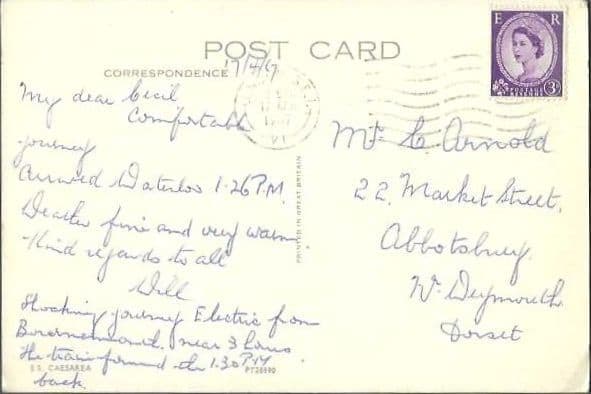 POST CARD
CORRESPONDENCE 17/4/67
My dear Cecil
Comfortable
journey
Arrived Waterloo 1.26 P.M.
Weather fine and very warm.
Kind regards to all
Will
Shocking journey Electric from
Bournemouth. near 3 hours
The train formed the 1.30 PM
back.
S.S. CAESAREA
PT28990
PRINTED IN GREAT BRITAIN
E R
POSTAGE
REVENUE
3D
Mr C Arnold
22, Market Street,
Abbotsbury.
Nr Weymouth
Dorset